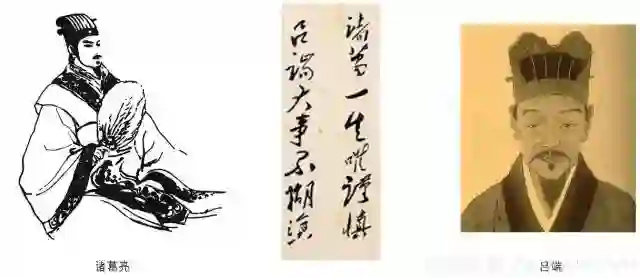 诸葛一生唯谨慎
吕端大事不糊涂
诸葛亮
吕端